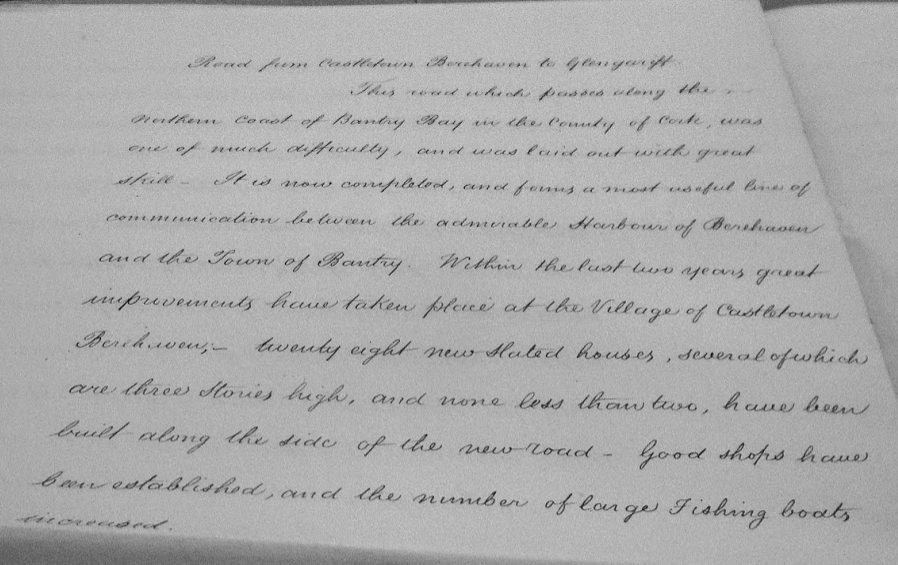 Road from Castletown Berehaven to Glengariff.
This road which passes along the
northern coast of Bantry Bay in the County of Cork, was
one of much difficulty, and was laid out with great
skill - It is now completed, and forms a most useful line of
communication between the admirable Harbour of Berehaven
and the Town of Bantry. Within the last two years great
improvements have taken place at the Village of Castletown
Berehaven;- twenty eight new slated houses, several of which
are three Stories high, and none less than two, have been
built along the side of the new road - Good shops have
been established, and the number of large Fishing boats
increased.